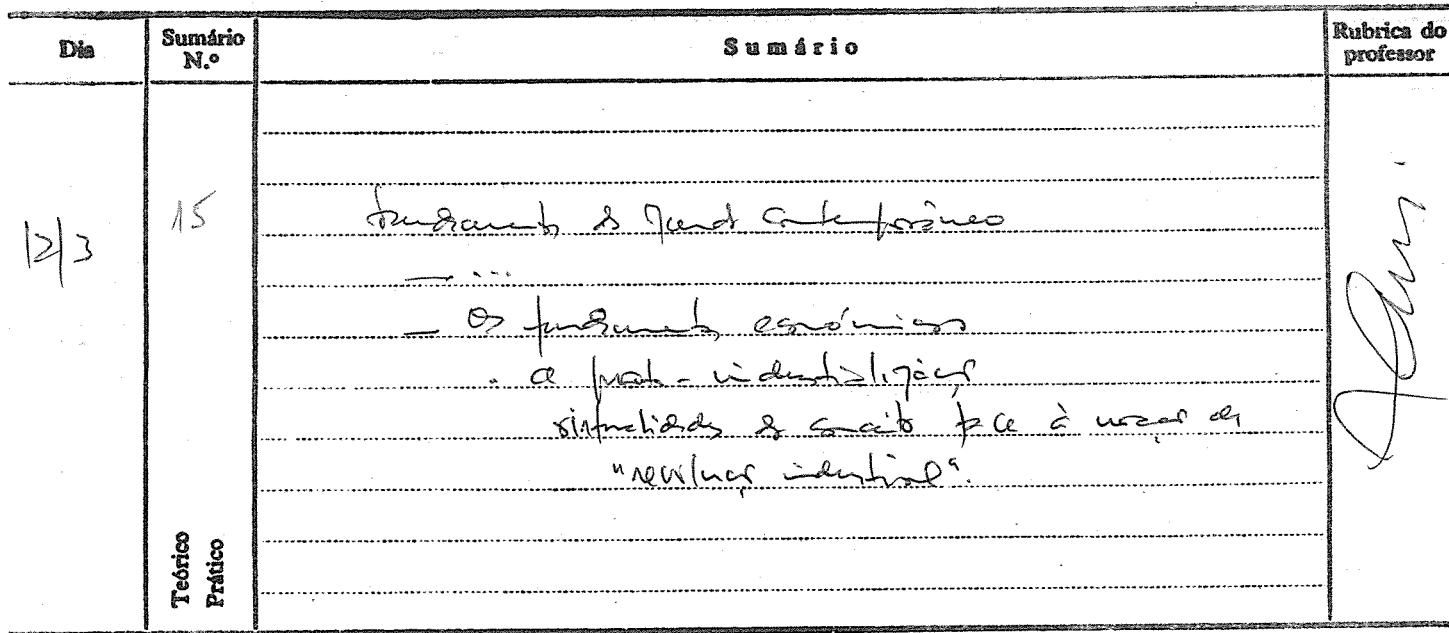 Dia
Sumário N.º
Sumário
Rubrica do professor
12/3
15
Fundamentos do Mundo Contemporâneo
— ...
— Os fundamentos económicos
. a proto-industrialização
do conceito face à noção de
"revolução industrial".
Teórico
Prático